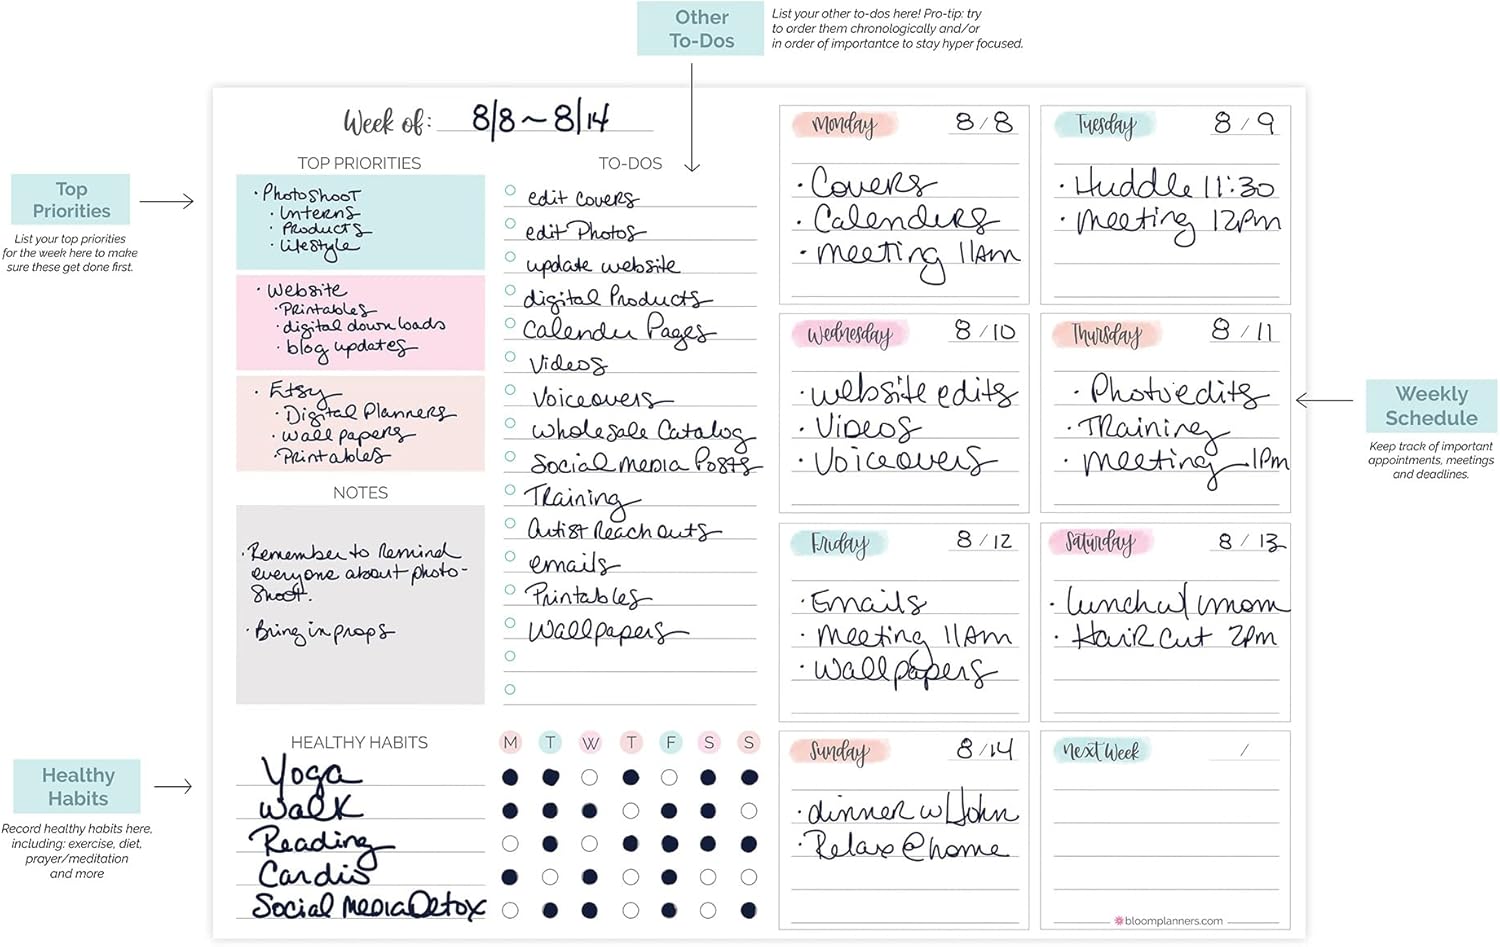 Other
To-Dos
List your other to-dos here! Pro-tip: try
to order them chronologically and/or
in order of importantce to stay hyper focused.
Top
Priorities
List your top priorities
for the week here to make
sure these get done first.
Week of: 8/8 ~ 8/14
TOP PRIORITIES
· Photoshoot
· Interns
· Products
· Lifestyle
· Website
· Printables
· digital downloads
· blog updates
· Etsy
· Digital Planners
· wallpapers
· Printables
NOTES
· Remember to Remind
everyone about photo-
shoot.
· Bring in props
TO-DOS
edit covers
edit Photos
update website
digital Products
Calender Pages
Videos
Voiceovers
Wholesale Catalog
Social media Posts
Training
Artist Reach outs
emails
Printables
Wallpapers
Healthy
Habits
Record healthy habits here,
including: exercise, diet,
prayer/meditation
and more
HEALTHY HABITS M T W T F S S
Yoga
Walk
Reading
Cardio
Social Media Detox
Monday 8/8
· Covers
· Calenders
· meeting 11am
Tuesday 8/9
· Huddle 11:30
· meeting 12pm
Wednesday 8/10
· website edits
· Videos
· Voiceovers
Thursday 8/11
· Photo edits
· Training
· meeting 1pm
Weekly
Schedule
Keep track of important
appointments, meetings
and deadlines.
Friday 8/12
· Emails
· meeting 11am
· Wallpapers
Saturday 8/13
· lunch w/ mom
· Haircut 2pm
Sunday 8/14
· dinner w/ John
· Relax @ home
Next Week /
bloomplanners.com